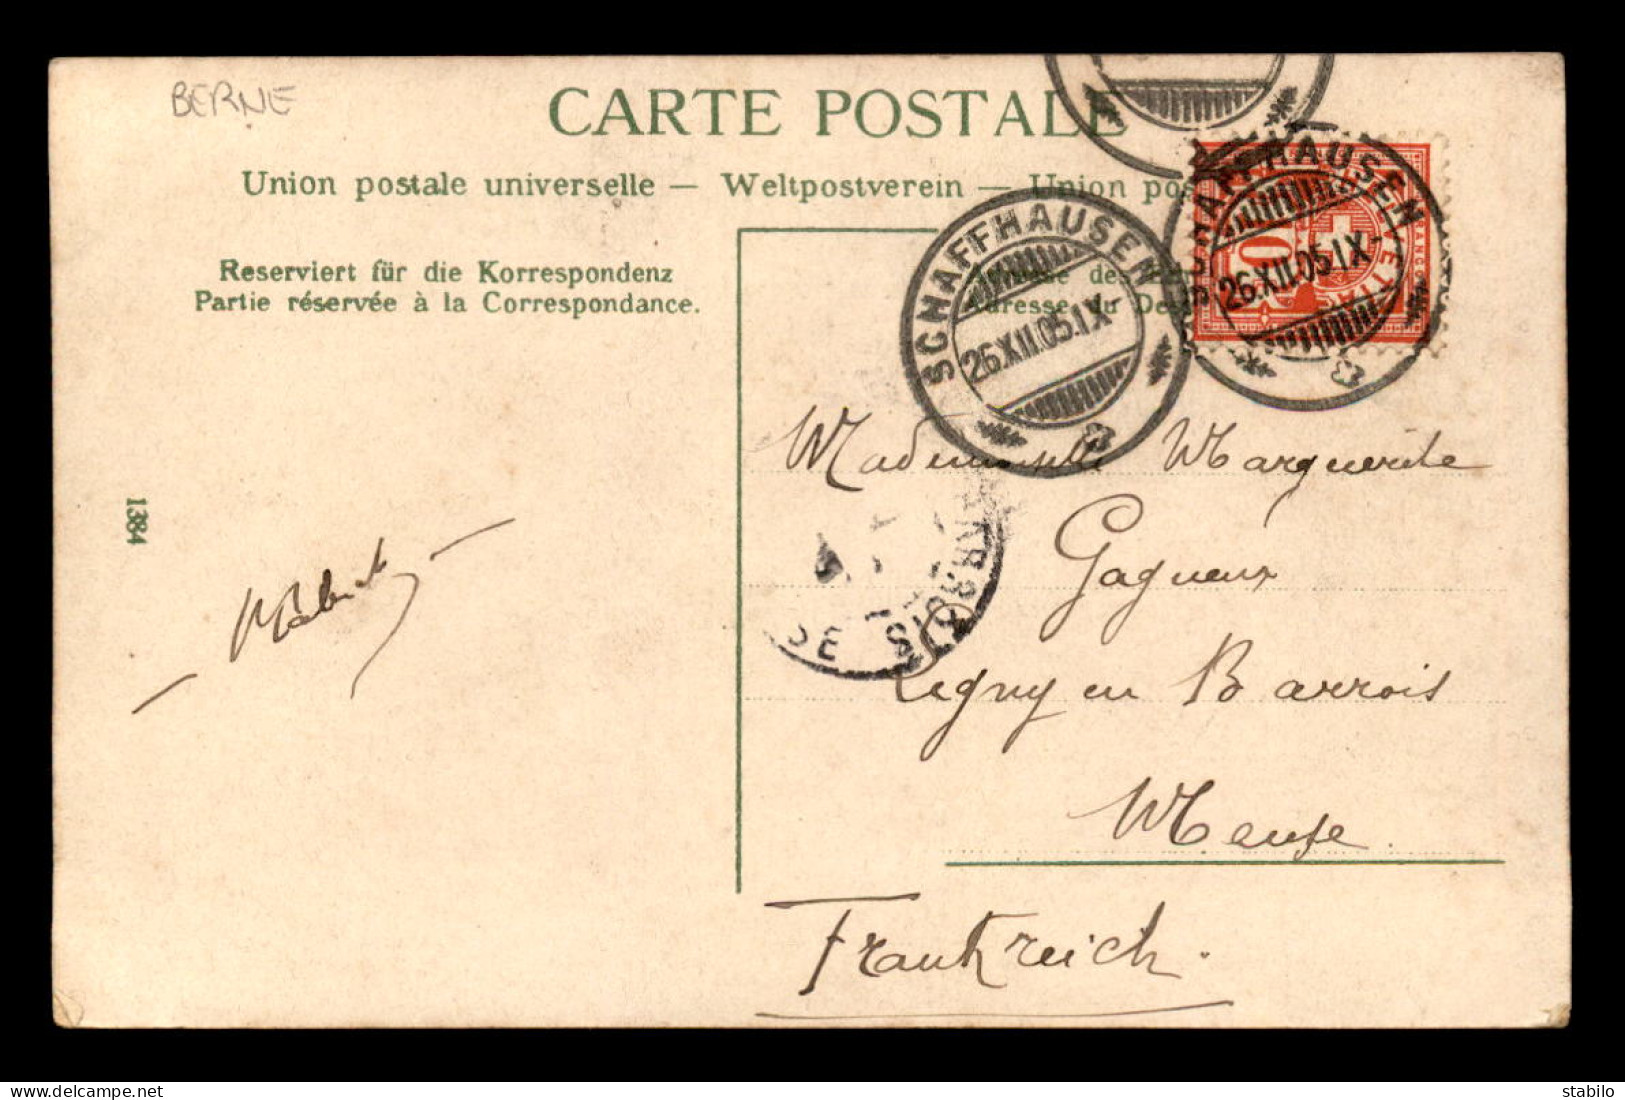 BERNE
CARTE POSTALE
Union postale universelle — Weltpostverein — Union
Reserviert für die Korrespondenz
Partie réservée à la Correspondance.
Adresse du
SCHAFFHAUSEN
26.XII.05.IX-
SCHAFFHAUSEN
26.XII.05.IX-
1384
Mademoiselle Marguerite
Gagneux
Ligny en Barrois
Meuse
Frankreich.
delcampe.net
stabilo